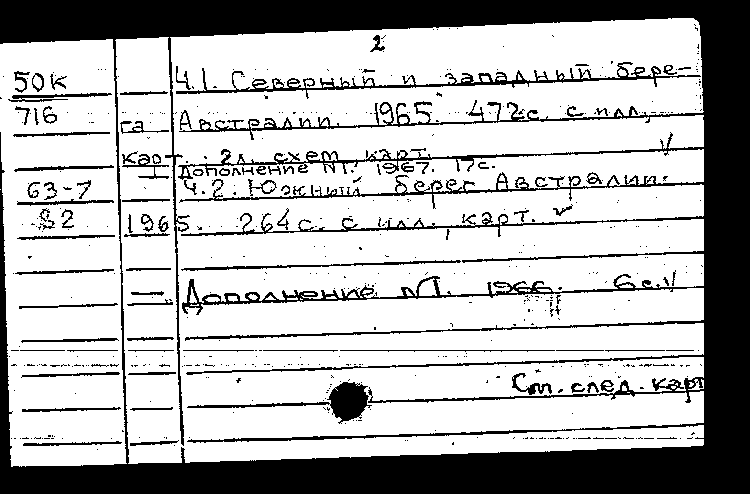 2
50К Ч.1. Северный и западный бере-
716 га Австралии. 1965. 472с. с илл.,
карт.; 2л. схем, карт.
— Дополнение №1. 1967. 17с.
63-7 Ч.2. Южный берег Австралии.
82 1965. 264с. с илл., карт.
— Дополнение №1. 1966. 6с.
См. след. карт